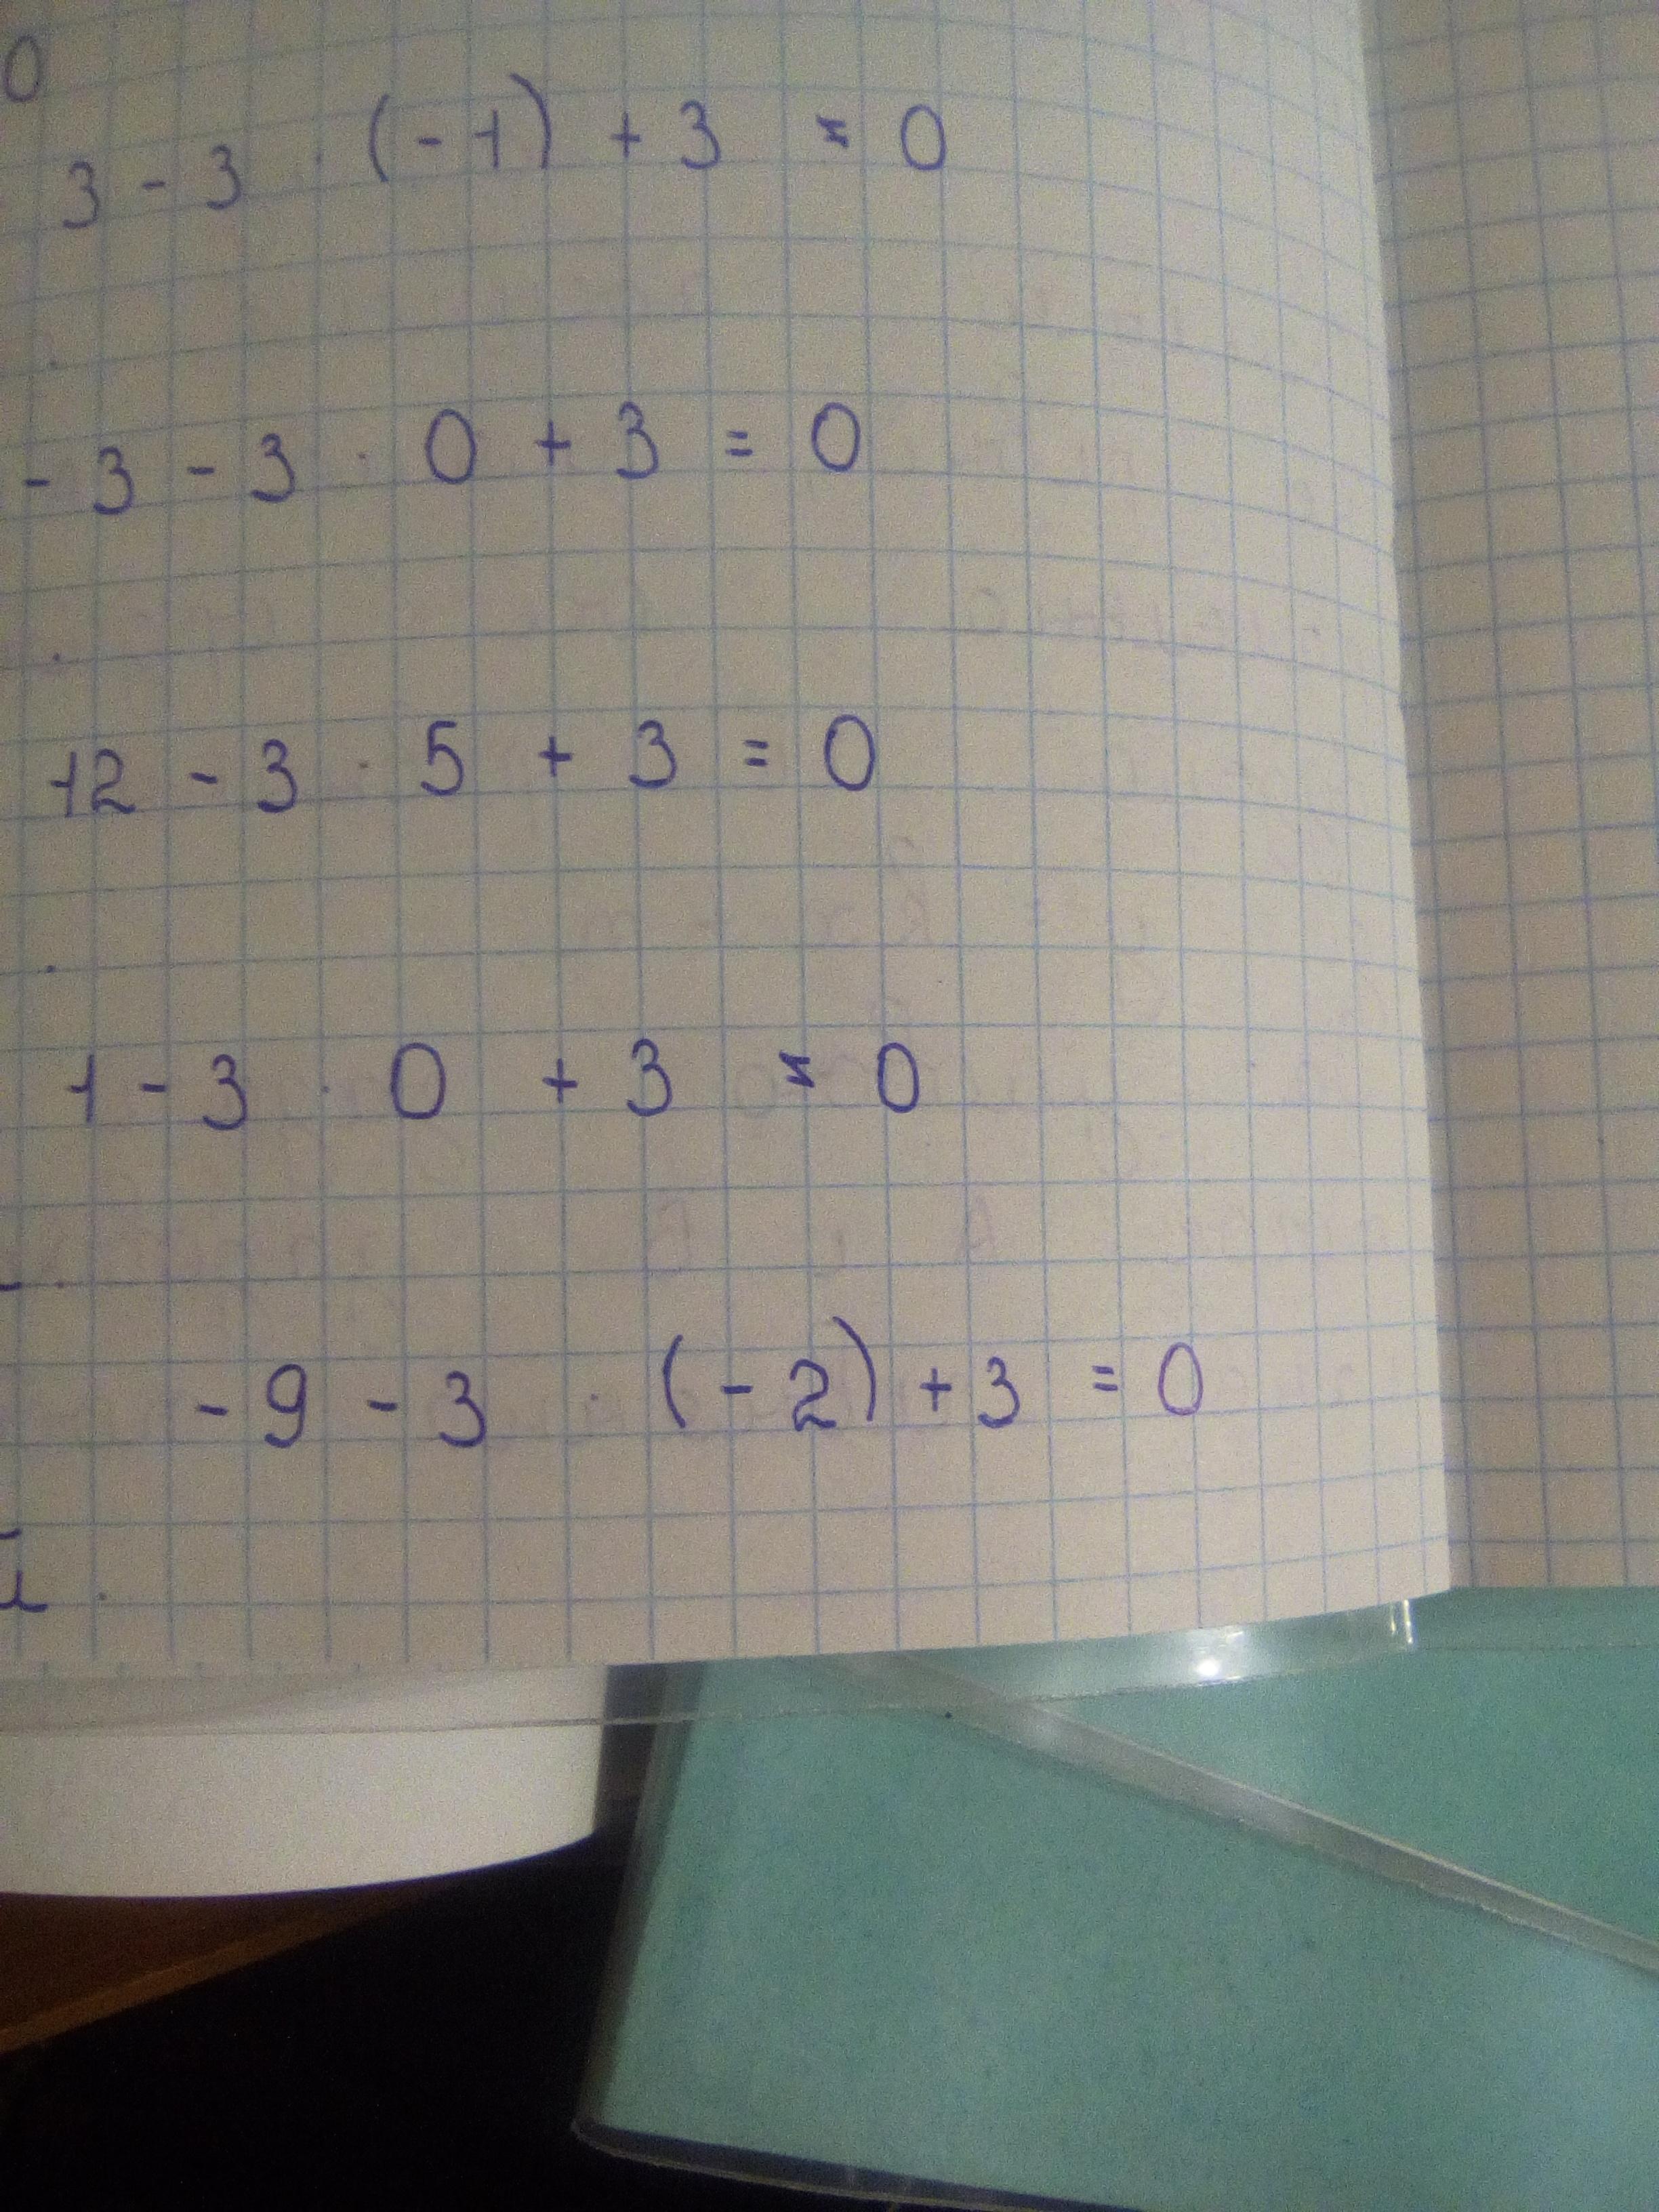 0
3 - 3 · (-1) + 3 ≠ 0
- 3 - 3 · 0 + 3 = 0
12 - 3 · 5 + 3 = 0
1 - 3 · 0 + 3 ≠ 0
- 9 - 3 · (-2) + 3 = 0